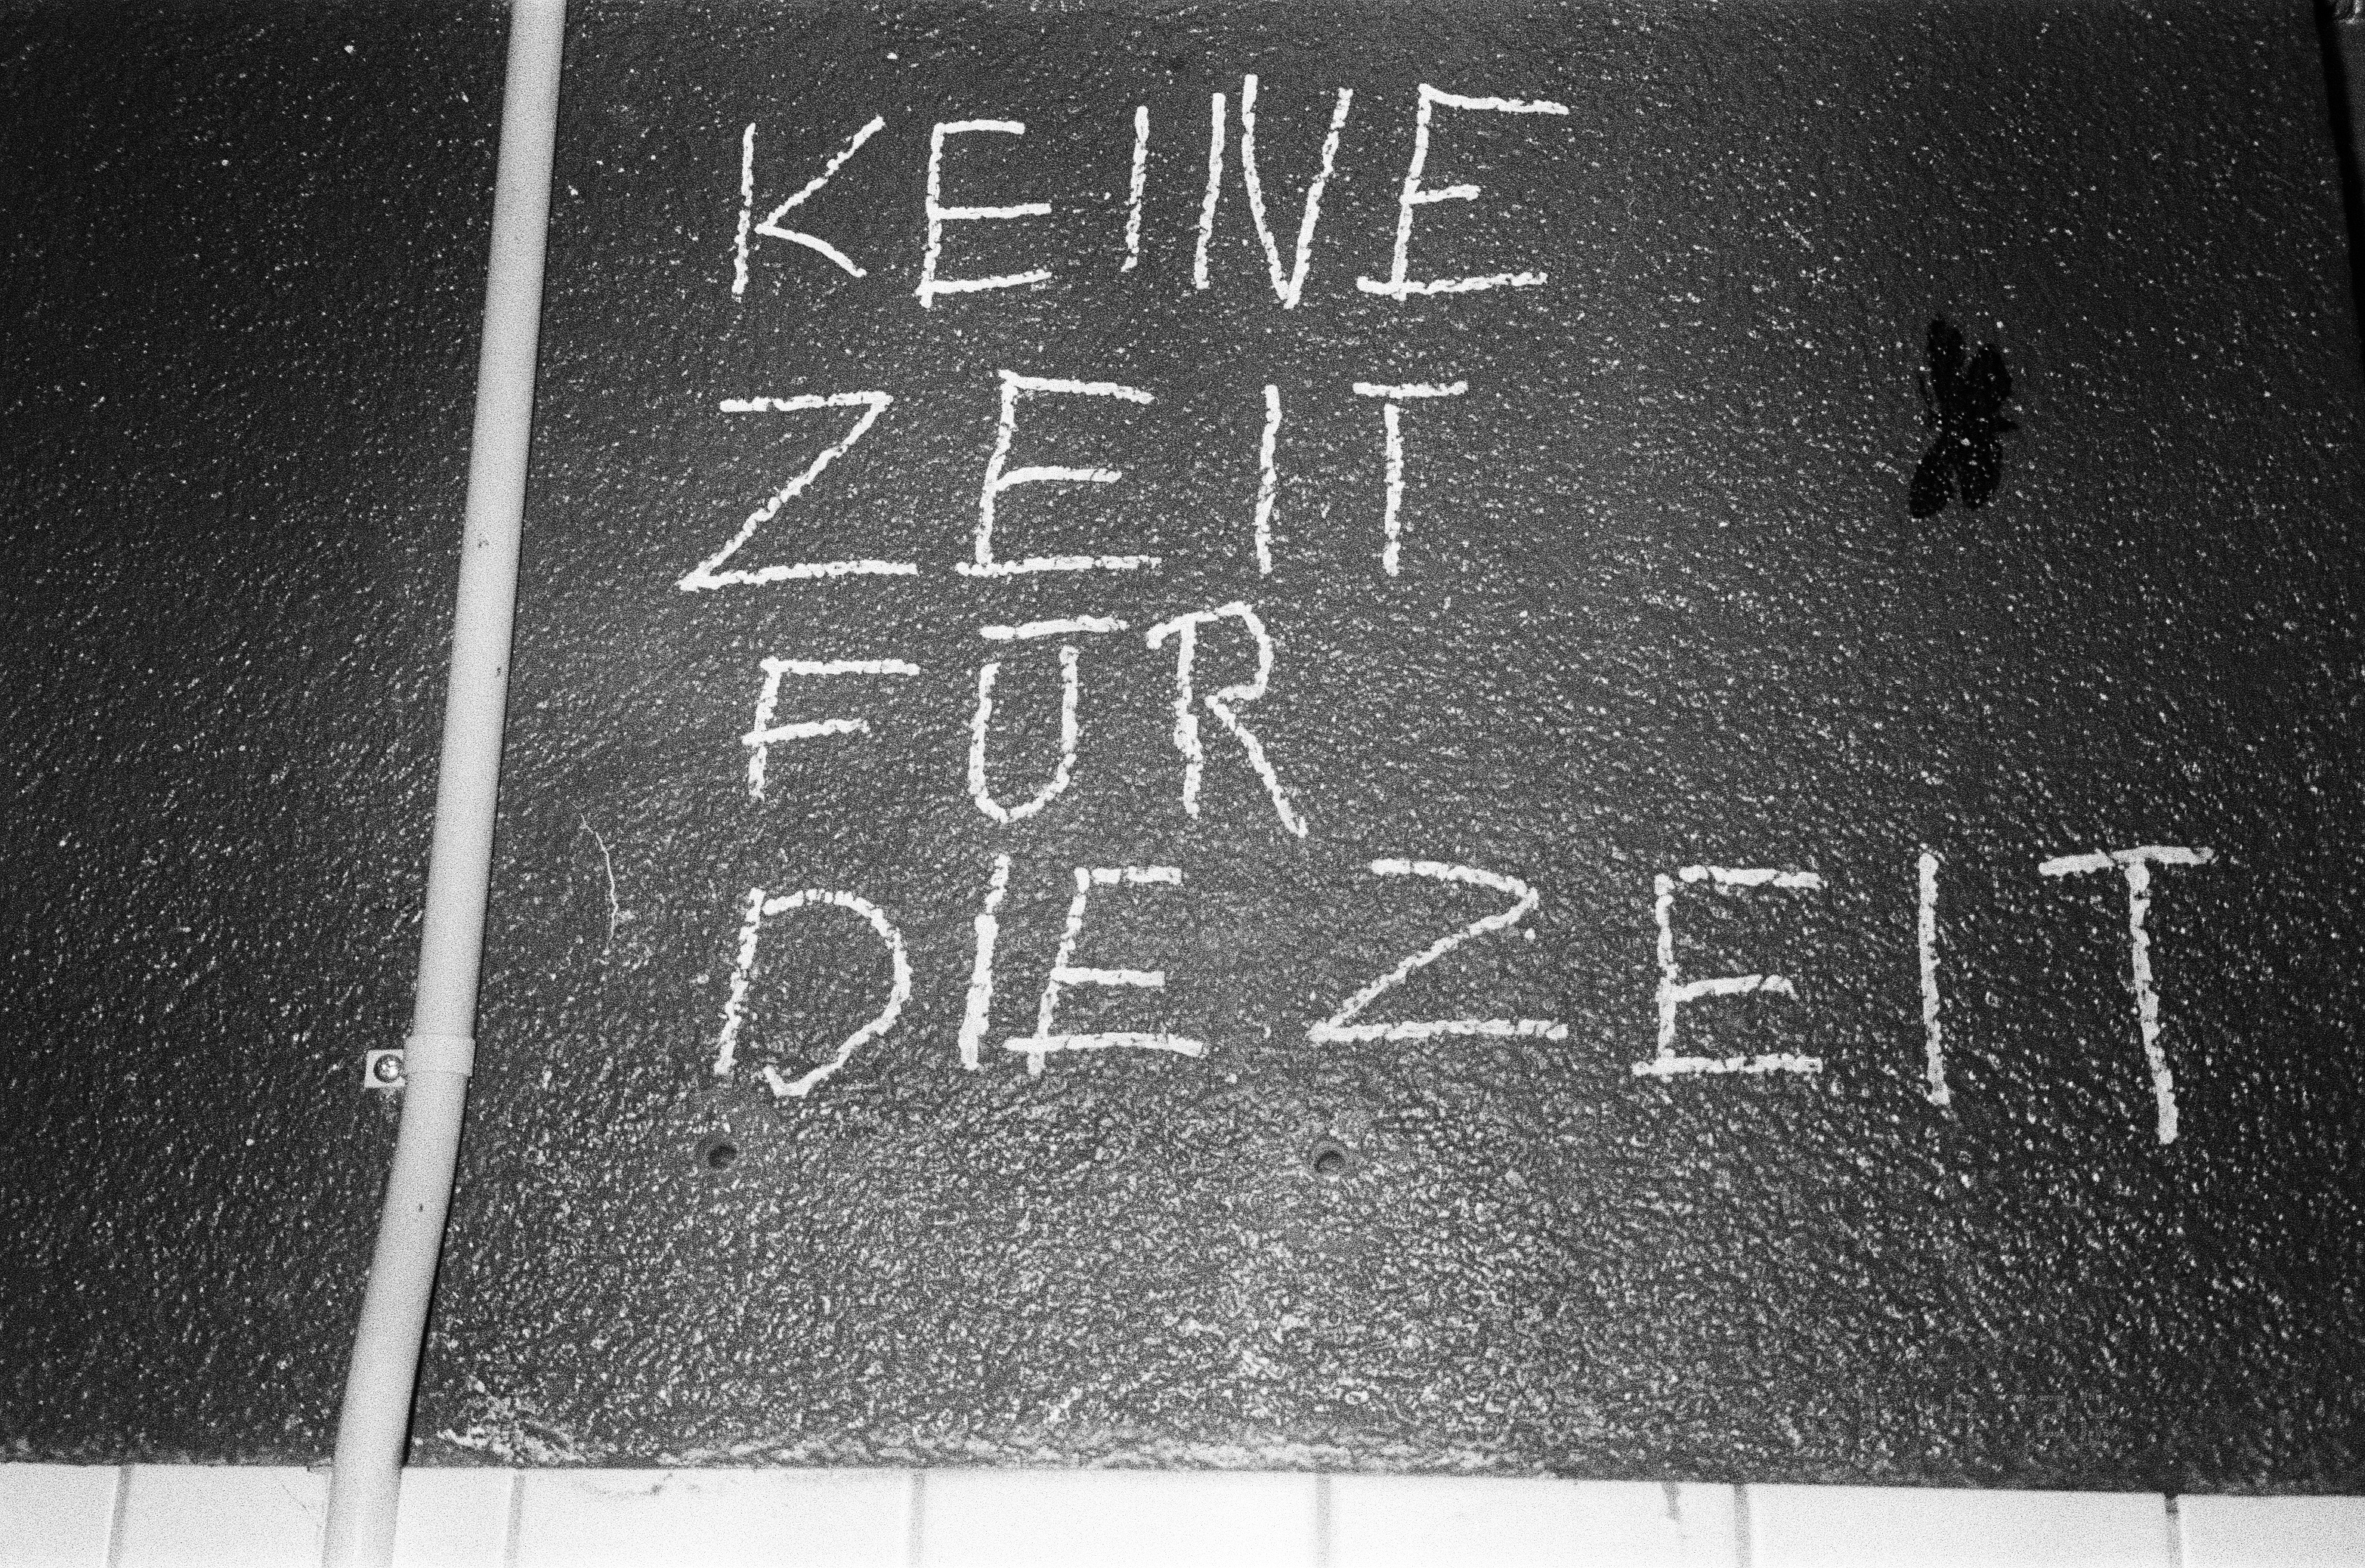 KEINE
ZEIT
FÜR
DIE ZEIT